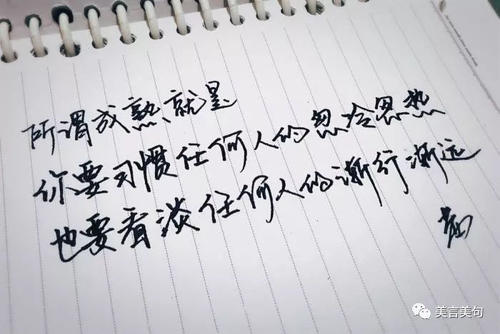 所谓成熟就是
你要习惯任何人的忽冷忽热
也要看淡任何人的渐行渐远
美言美句